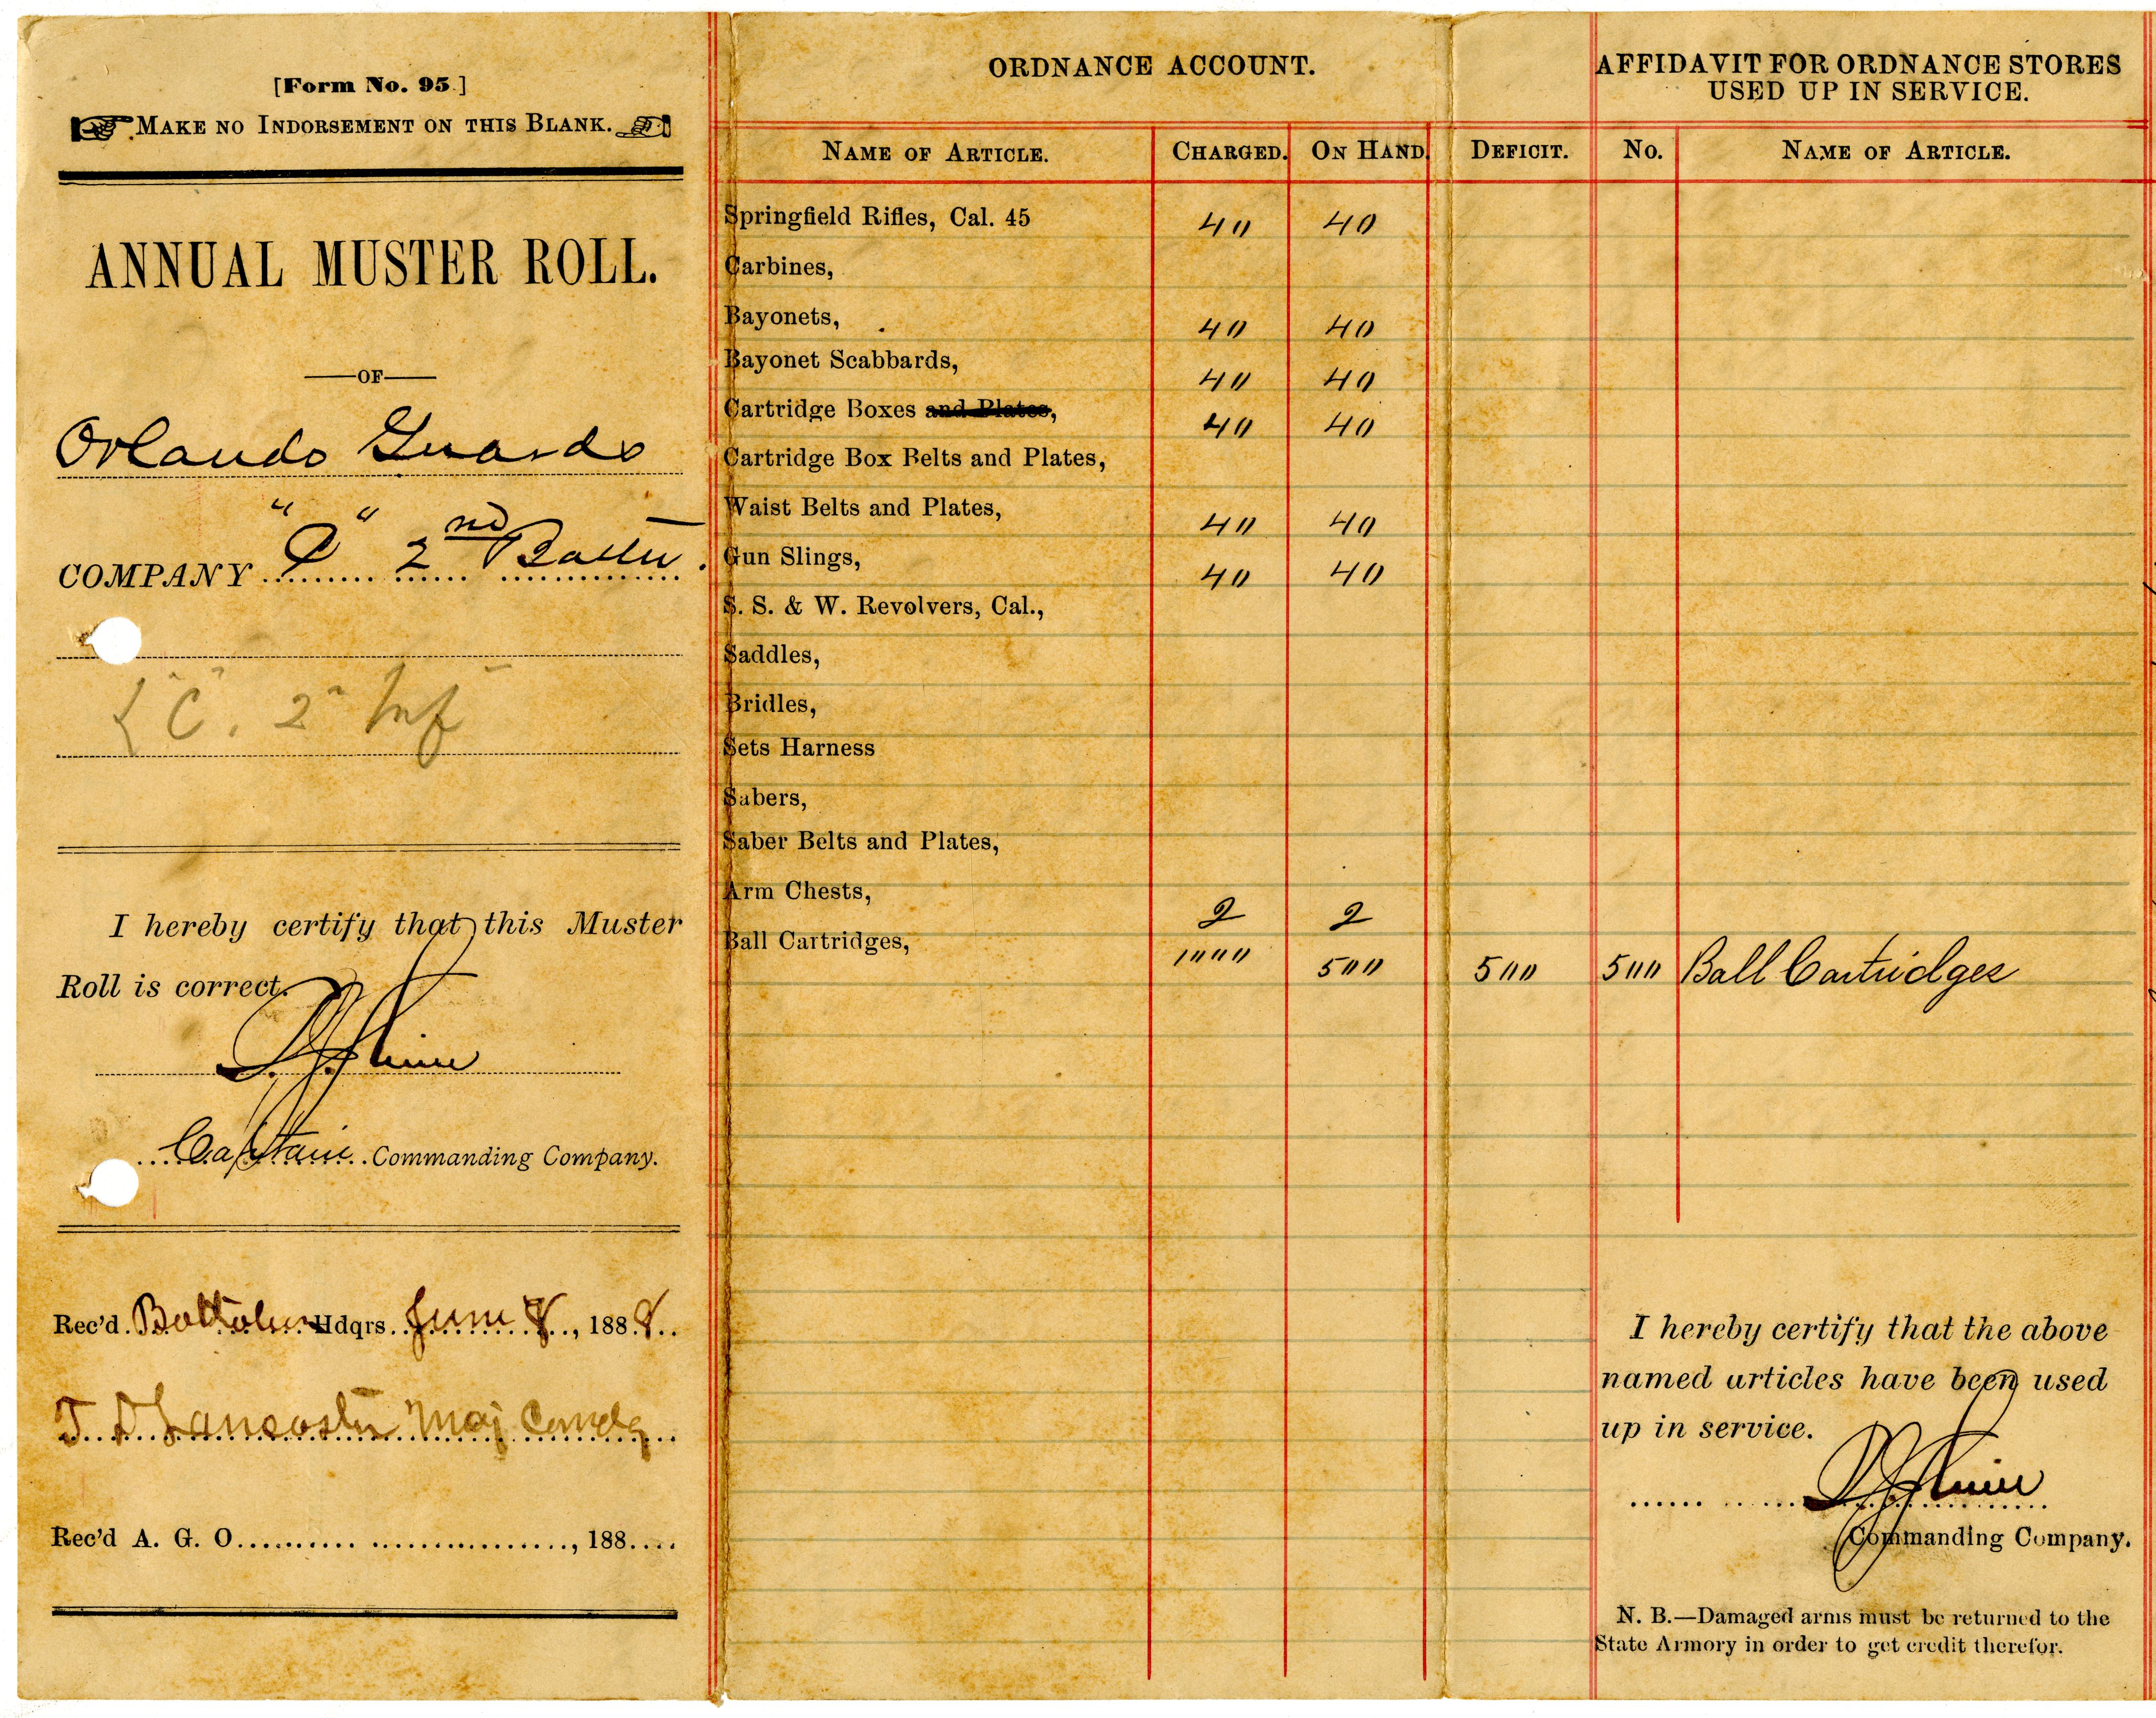 [Form No. 95.]
MAKE NO INDORSEMENT ON THIS BLANK.
ANNUAL MUSTER ROLL.
—OF—
Orlando Guards
COMPANY "C" 2nd Battn.
"C". 2" Inf
I hereby certify that this Muster
Roll is correct.
Captain Commanding Company.
Rec'd. Hdqrs. June 8, 1888.
Lancaster Maj Comdg
Rec'd A. G. O. , 188
ORDNANCE ACCOUNT.
NAME OF ARTICLE. CHARGED. ON HAND. DEFICIT.
Springfield Rifles, Cal. 45 40 40
Carbines,
Bayonets, 40 40
Bayonet Scabbards, 40 40
Cartridge Boxes and Plates, 40 40
Cartridge Box Belts and Plates,
Waist Belts and Plates, 40 40
Gun Slings, 40 40
S. S. & W. Revolvers, Cal.,
Saddles,
Bridles,
Sets Harness
Sabers,
Saber Belts and Plates,
Arm Chests, 2 2
Ball Cartridges, 1000 500 500
AFFIDAVIT FOR ORDNANCE STORES
USED UP IN SERVICE.
NO. NAME OF ARTICLE.
500 Ball Cartridges
I hereby certify that the above
named articles have been used
up in service.
Commanding Company.
N. B.—Damaged arms must be returned to the
State Armory in order to get credit therefor.